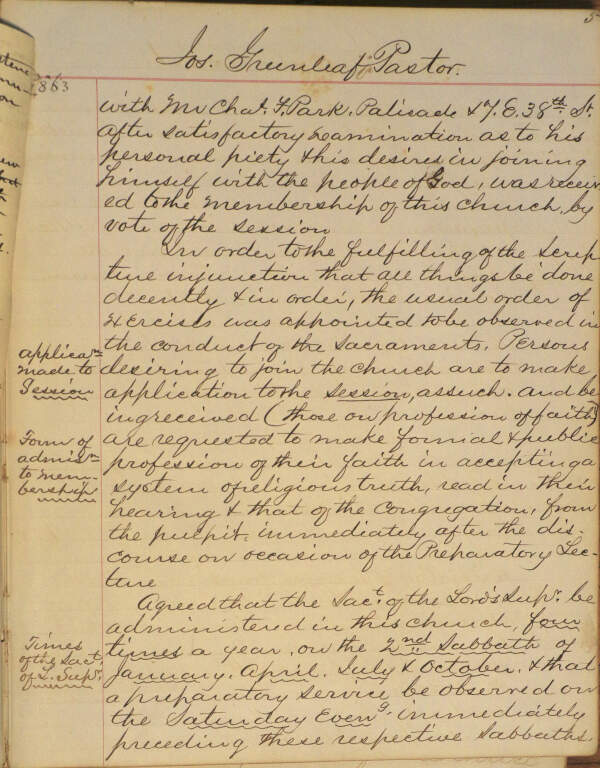 5
Jos. Greenleaf Pastor.
1863
with Mr Chas. F. Park, Palisade & 7. E. 38th St.
after satisfactory examination as to his
personal piety & his desires in joining
himself with the people of God, was receiv
ed to the membership of this church, by
vote of the session
In order to the fulfilling of the Scrip
ture injunction that all things be done
decently & in order, the usual order of
Exercises was appointed to be observed in
the conduct of the Sacraments. Persons
desiring to join the church are to make
application to the Session, as such. And be
ing received (those on profession of faith)
are requested to make formal & public
profession of their faith in accepting a
system of religious truth, read in their
hearing & that of the Congregation, from
the pulpit, immediately after the dis-
course on occasion of the Preparatory Lec-
ture
Agreed that the Sact. of the Lord's Supr. be
administered in this church, four
times a year, on the 2nd Sabbath of
January, April, July & October, & that
a preparatory service be observed on
the Saturday Eveng. immediately
preceding these respective Sabbaths.
applicatn
made to
Session
Form of
admissn
to mem-
bership
Times
of the Sact.
of L. Supr.